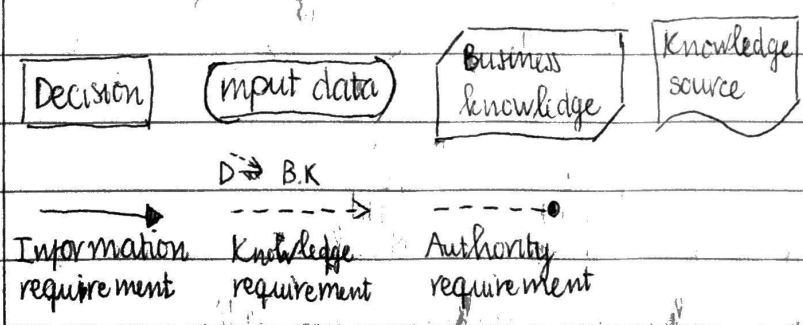 Decision
input data
Business
knowledge
Knowledge
source
D ⇢ B.K
Information
requirement
Knowledge
requirement
Authority
requirement